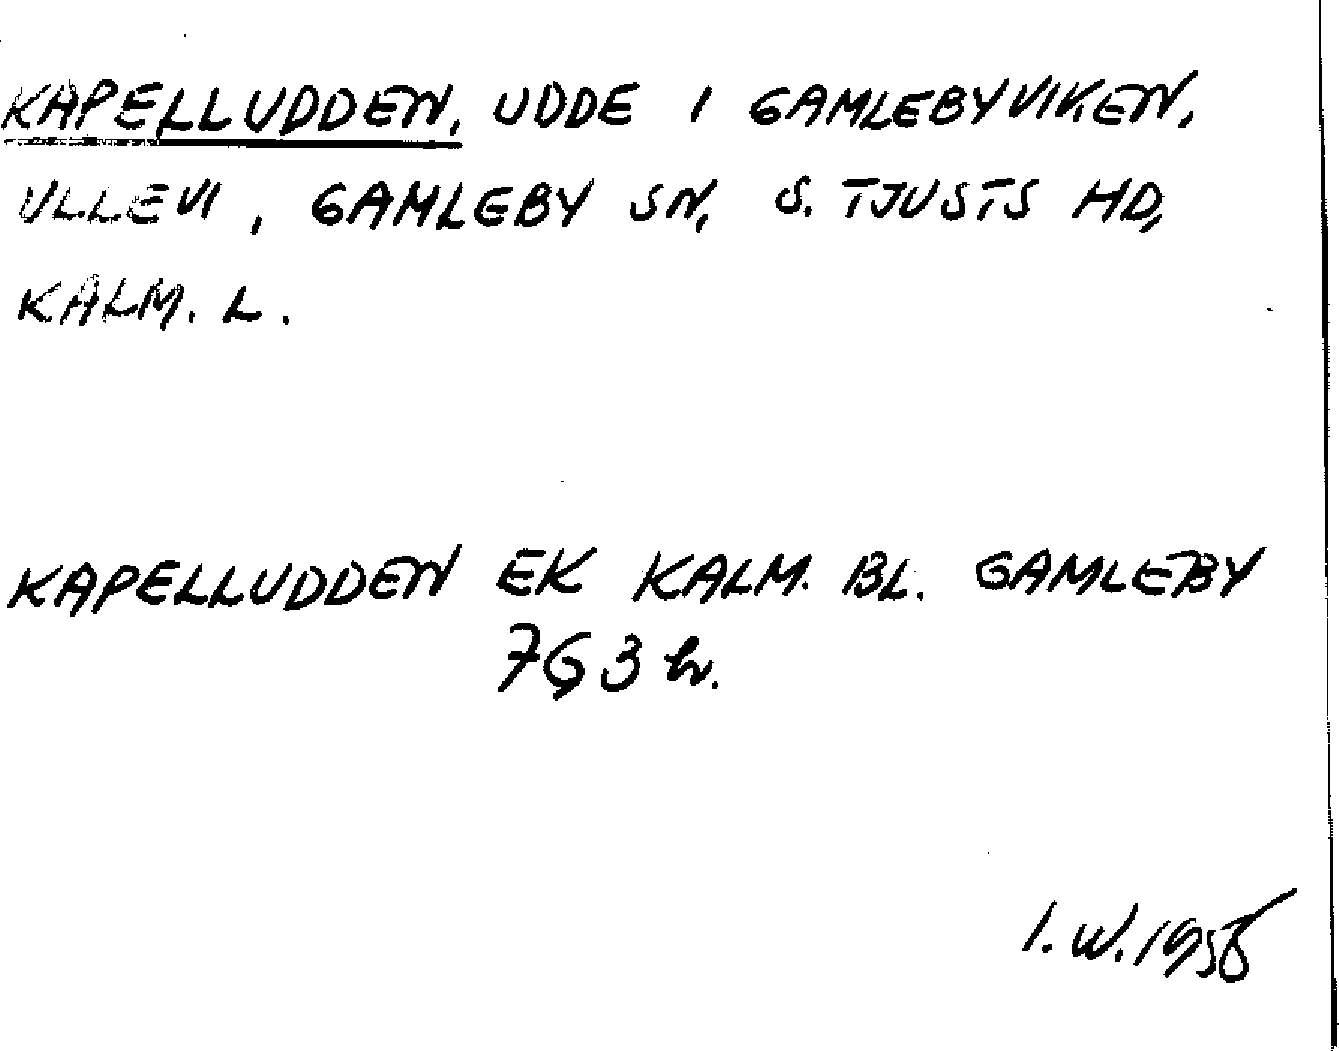 KAPELLUDDEN, UDDE I GAMLEBYVIKEN,
ULLEVI, GAMLEBY SN, S. TJUSTS HD,
KALM. L.
KAPELLUDDEN EK KALM. BL. GAMLEBY
7G3h.
I.W.1958